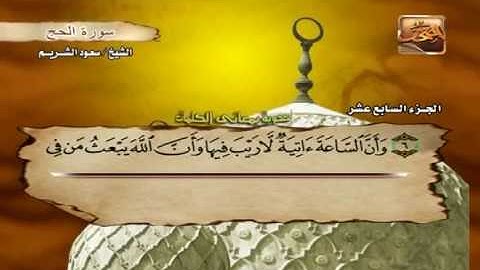 سورة الحج
الشيخ / سعود الشريم
الجزء السابع عشر
٦ وَأَنَّ ٱلسَّاعَةَ ءَاتِيَةٌ لَّا رَيْبَ فِيهَا وَأَنَّ ٱللَّهَ يَبْعَثُ مَن فِي